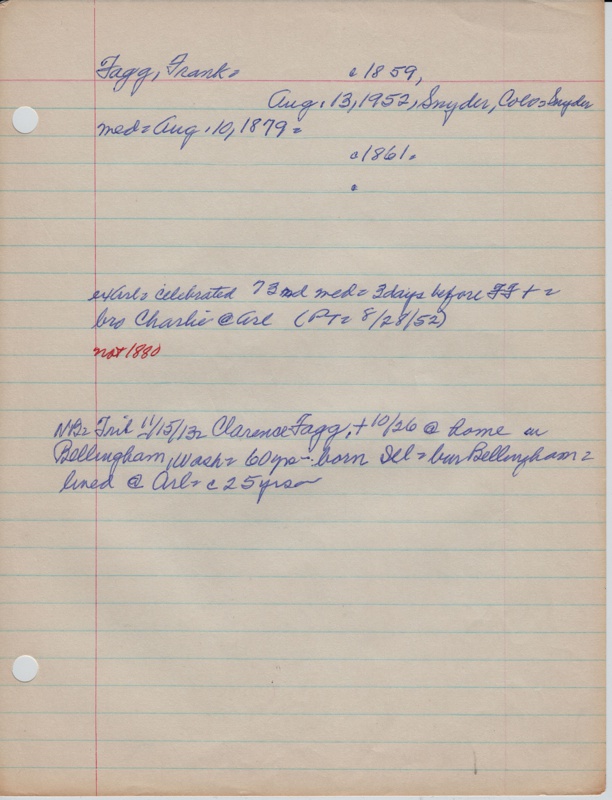 Fagg, Frank= c1859,
Aug. 13, 1952, Snyder, Colo= Snyder
med= Aug. 10, 1879=
c1861=
c
exArl= celebrated 73nd med= 3days before FF + =
bro Charlie @ Arl (PT= 8/28/52)
not 1880
NB= Trib 11/15/13= Clarence Fagg, + 10/26 @ home in
Bellingham, Wash= 60yrs= born Ill= bur Bellingham=
lived @ Arl= c25yrs=